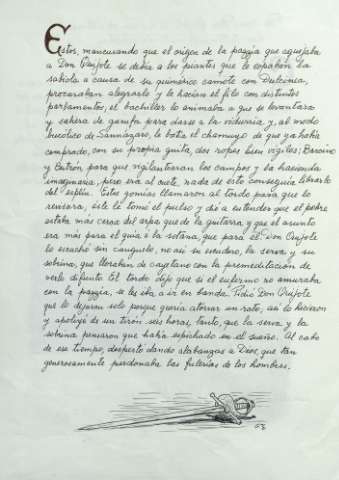 Estos, mancurando que el origen de la pazzia que aquejaba
a Don Quijote se debía a los piantes que le españan la
sabiola a causa de su quimérico camote con Dulcinea,
procuraban alegrarle y le hacían el filo con distintos
parlamentos, el bachiller lo animaba a que se levantara
y saliera de garufa para darse a la viduria y, al modo
bucólico de Sannazaro, le batía el chamuyo de que ya había
comprado, con su propia guita, dos ropes bien vigilos; Barcino
y Butrón para que vigilantearan los campos y la hacienda
imaginaria, pero era al cuete, nada de esto conseguía librarlo
del esplín. Estos gomías llamaron al tordo para que lo
revisara, éste le tomó el pulso y dió a entender que el pobre
estaba más cerca del arpa que de la guitarra, y que el asunto
era más para el guía e' la sotana, que para él. Don Quijote
lo escachó sin canguelo, no así su escudero, la serva y su
sobrina, que lloraban de cayetano con la premeditación de
verlo difunto. El tordo dijo que si el enfermo no amuraba
con la pazzia, se les iba a ir en banda. Pidió Don Quijote
que lo dejaran solo porque quería atorrar un rato, así lo hicieron
y apoliyó de un tirón seis horas, tanto, que la serva y la
sobrina pensaron que había espichado en el sueño. Al cabo
de ese tiempo, despertó dando alabanzas a Dios, que tan
generosamente perdonaba las fulerías de los hombres.